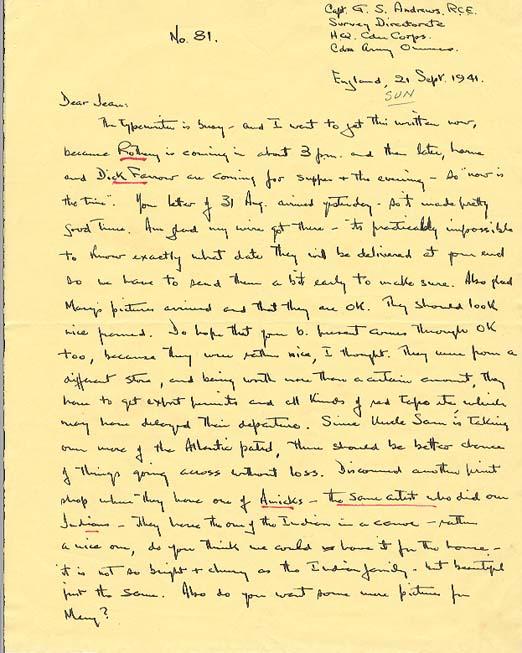 No. 81.
Capt. G. S. Andrews, R.C.E.
Survey Directorate
H.Q. Cdn Corps.
Cdn Army Overseas.
England, 21 Sept. 1941.
SUN
Dear Jean:
The typewriter is busy - and I want to get this written now,
because Rothery is coming in about 3 pm. and then later, he
and Dick Farrow are coming for supper + the evening - so "now is
the time". Your letter of 31 Aug. arrived yesterday - so it made pretty
good time. Am glad my wire got there - its practically impossible
to know exactly what date they will be delivered at your end
so we have to send them a bit early to make sure. Also glad
Mary's pictures arrived and that they are OK. They should look
nice framed. Do hope that your b. present comes through OK
too, because they were rather nice, I thought. They were from a
different store, and being worth more than a certain amount, they
have to get export permits and all kinds of red tape etc, which
may have delayed their departure. Since Uncle Sam is taking
over more of the Atlantic patrol, there should be better chance
of things going across without loss. Discovered another print
shop where they have one of - the same artist who did our
Indians - They have the one of the Indian in a canoe - rather
a nice one, do you think we could have it for the home -
it is not so bright + as the Indian family - but beautiful
just the same. Also do you want some more pictures for
Mary?